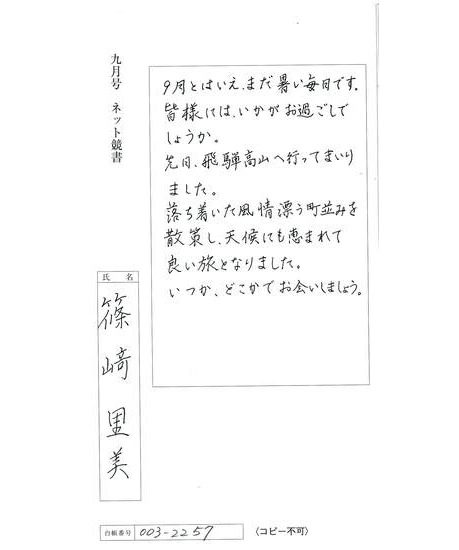 九月号 ネット競書
9月とはいえ、まだ暑い毎日です。
皆様には、いかがお過ごしで
しょうか。
先日、飛騨高山へ行ってまいり
ました。
落ち着いた風情漂う町並みを
散策し、天候にも恵まれて
良い旅となりました。
いつか、どこかでお会いしましょう。
氏名
篠﨑里美
台帳番号 003-2257
(コピー不可)